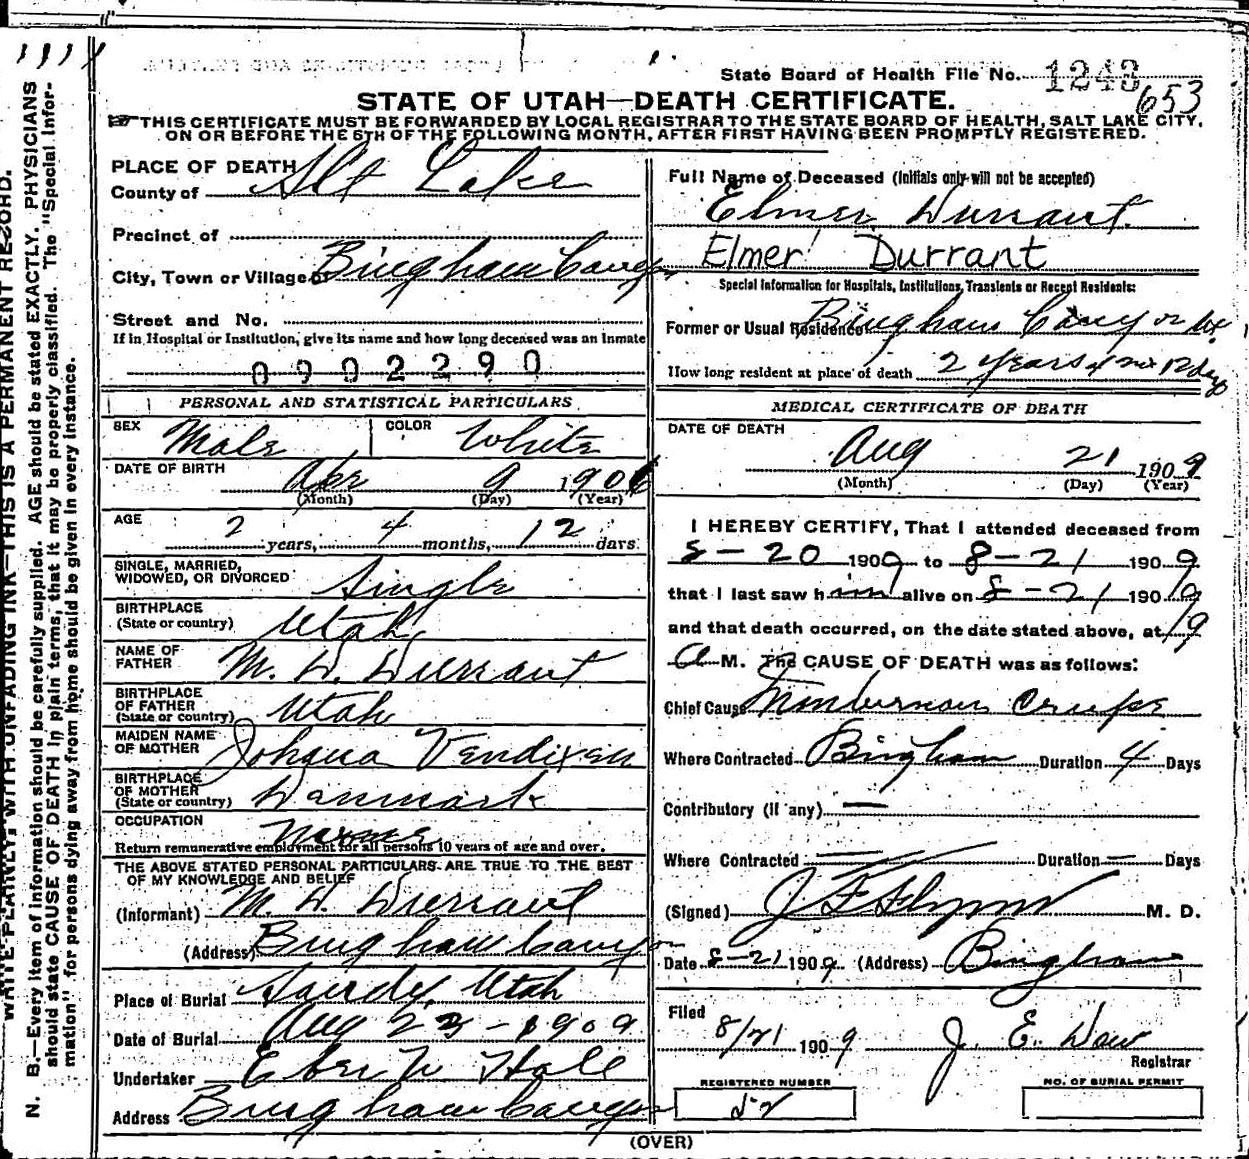 State Board of Health File No. 1243
653
STATE OF UTAH—DEATH CERTIFICATE.
THIS CERTIFICATE MUST BE FORWARDED BY LOCAL REGISTRAR TO THE STATE BOARD OF HEALTH, SALT LAKE CITY,
ON OR BEFORE THE 5TH OF THE FOLLOWING MONTH, AFTER FIRST HAVING BEEN PROMPTLY REGISTERED.
PLACE OF DEATH
County of Slt Lake
Precinct of
City, Town or Village of Bingham Canyon
Street and No.
If in Hospital or Institution, give its name and how long deceased was an inmate
0902290
PERSONAL AND STATISTICAL PARTICULARS
SEX Male COLOR White
DATE OF BIRTH Apr 9 190
(Month) (Day) (Year)
AGE 2 years, 4 months, 12 days
SINGLE, MARRIED,
WIDOWED, OR DIVORCED Single
BIRTHPLACE
(State or country) Utah
NAME OF
FATHER M. W. Durrant
BIRTHPLACE
OF FATHER
(State or country) Utah
MAIDEN NAME
OF MOTHER Johana Vendixen
BIRTHPLACE
OF MOTHER
(State or country) Danmark
OCCUPATION
Return remunerative employment for all persons 10 years of age and over.
THE ABOVE STATED PERSONAL PARTICULARS ARE TRUE TO THE BEST
OF MY KNOWLEDGE AND BELIEF
(Informant) M. W. Durrant
(Address) Bingham Canyon
Place of Burial Sandy, Utah
Date of Burial Aug 23-1909
Undertaker Eber W Hall
Address Bingham Canyon
Full Name of Deceased (Initials only will not be accepted)
Elmer Durrant.
Elmer Durrant
Special Information for Hospitals, Institutions, Transients or Recent Residents:
Former or Usual Residence Bingham Canyon Ut.
How long resident at place of death 2 years 4 mo 12 days
MEDICAL CERTIFICATE OF DEATH
DATE OF DEATH
Aug 21 1909
(Month) (Day) (Year)
I HEREBY CERTIFY, That I attended deceased from
8-20 1909 to 8-21 1909
that I last saw him alive on 8-21 1909
and that death occurred, on the date stated above, at
a M. The CAUSE OF DEATH was as follows:
Chief Cause Membernous Croupe
Where Contracted Bingham Duration 4 Days
Contributory (if any) —
Where Contracted — Duration — Days
(Signed) J F Flynn M. D.
Date 8-21 1909. (Address) Bingham
Filed 8/21 1909 J. E. Daw
Registrar
REGISTERED NUMBER
NO. OF BURIAL PERMIT
(OVER)
WRITE PLAINLY, WITH UNFADING INK—THIS IS A PERMANENT RECORD.
N. B.—Every item of information should be carefully supplied. AGE should be stated EXACTLY. PHYSICIANS
should state CAUSE OF DEATH in plain terms, that it may be properly classified. The "Special Infor-
mation" for persons dying away from home should be given in every instance.